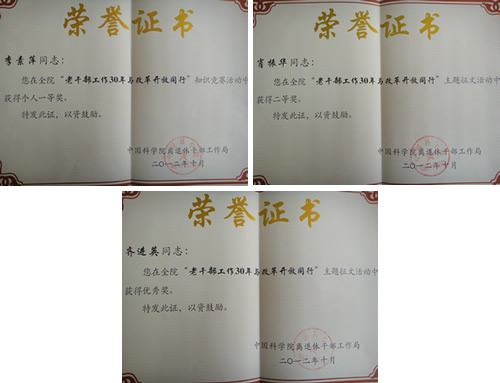 荣誉证书
李素萍同志:
您在全院“老干部工作30年与改革开放同行”知识竞赛活动中
获得个人一等奖。
特发此证，以资鼓励。
中国科学院离退休干部工作局
二〇一二年十月
荣誉证书
肖振华同志:
您在全院“老干部工作30年与改革开放同行”主题征文活动中
获得二等奖。
特发此证，以资鼓励。
中国科学院离退休干部工作局
二〇一二年十月
荣誉证书
齐进英同志:
您在全院“老干部工作30年与改革开放同行”主题征文活动中
获得优秀奖。
特发此证，以资鼓励。
中国科学院离退休干部工作局
二〇一二年十月